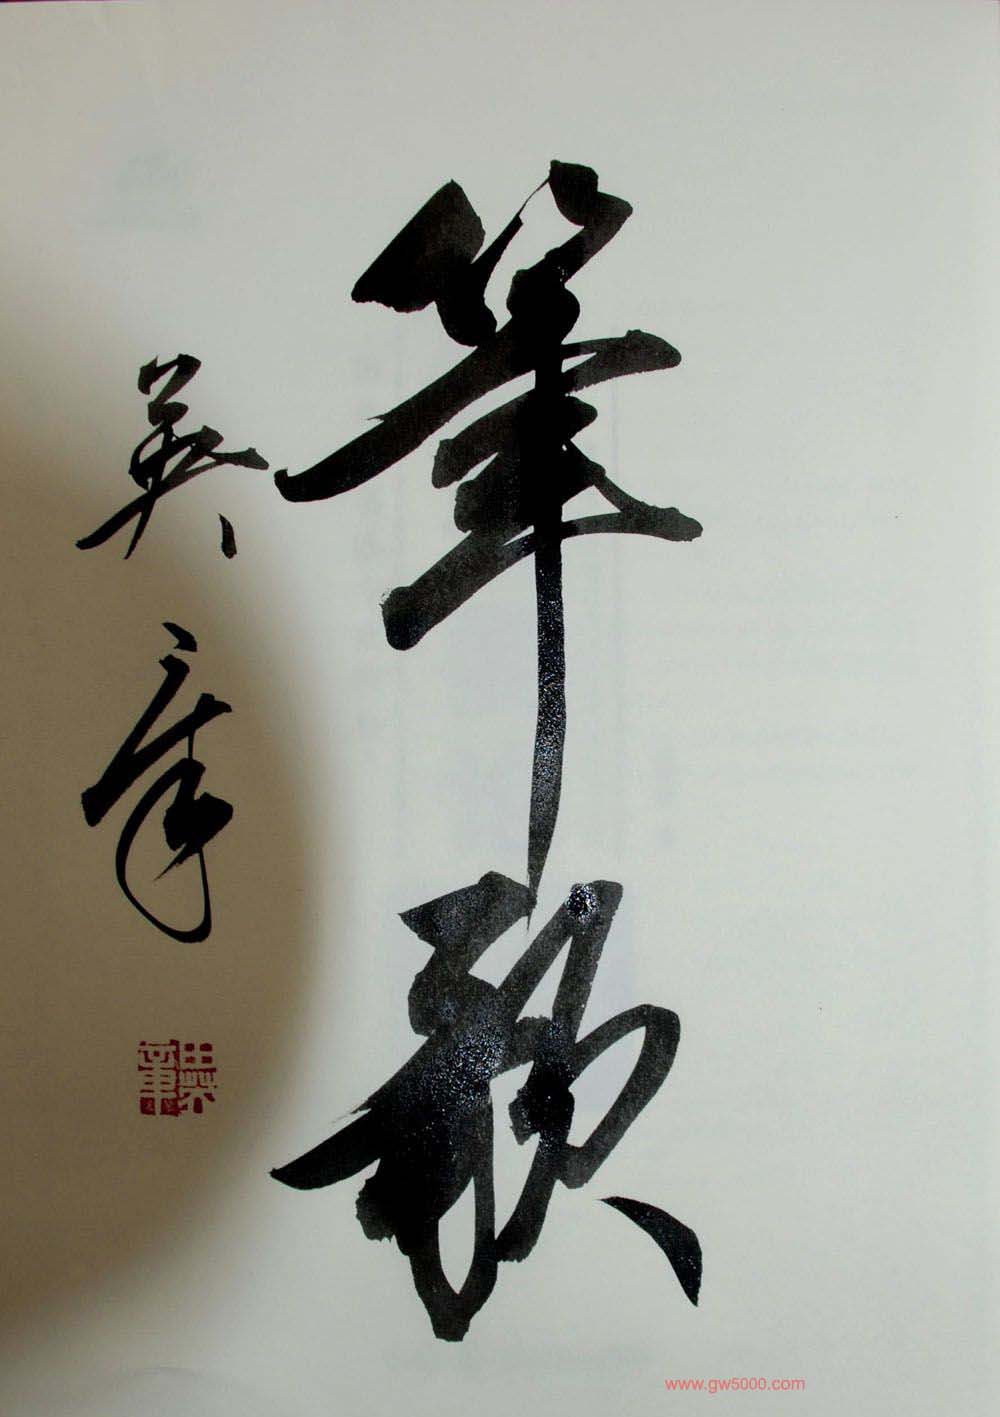 筆歌
英章
www.gw5000.com